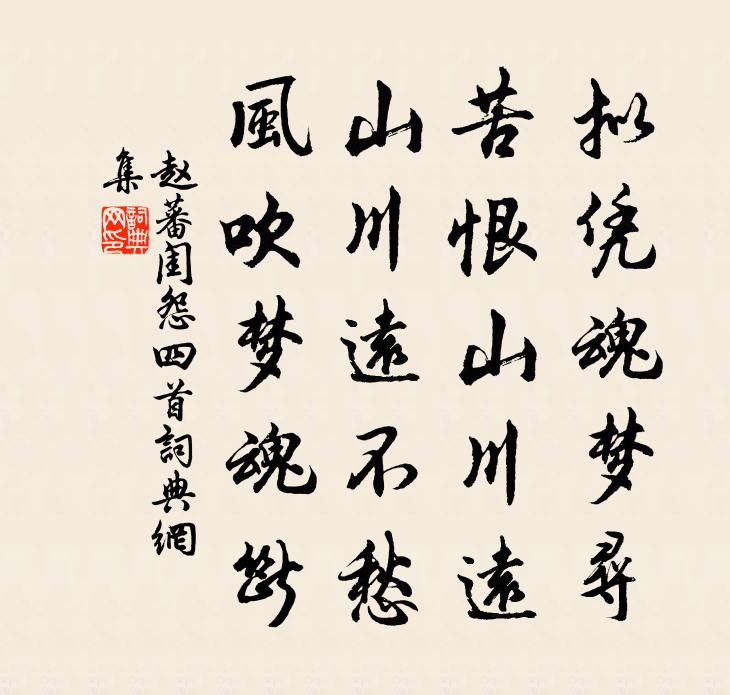 拟凭魂梦寻
苦恨山川遠
山川遠不愁
風吹梦魂斷
赵蕃闺怨四首詞典網
集
詞典
网印